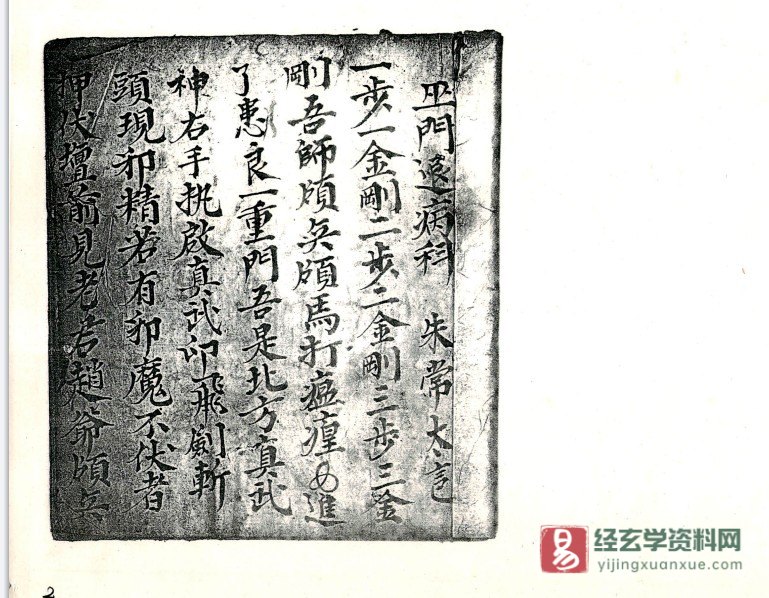 巫門退病科 朱常太
一步一金剛二步二金剛三步三金
剛吾師領兵領馬打瘟瘟进進
了患良一重門吾是北方真武
神右手执啟真武印飛劍斬
頭現邪精若有邪魔不伏者
押伏壇前見老君趙爺領兵
经玄学资料网
yijingxuanxue.com
易
2